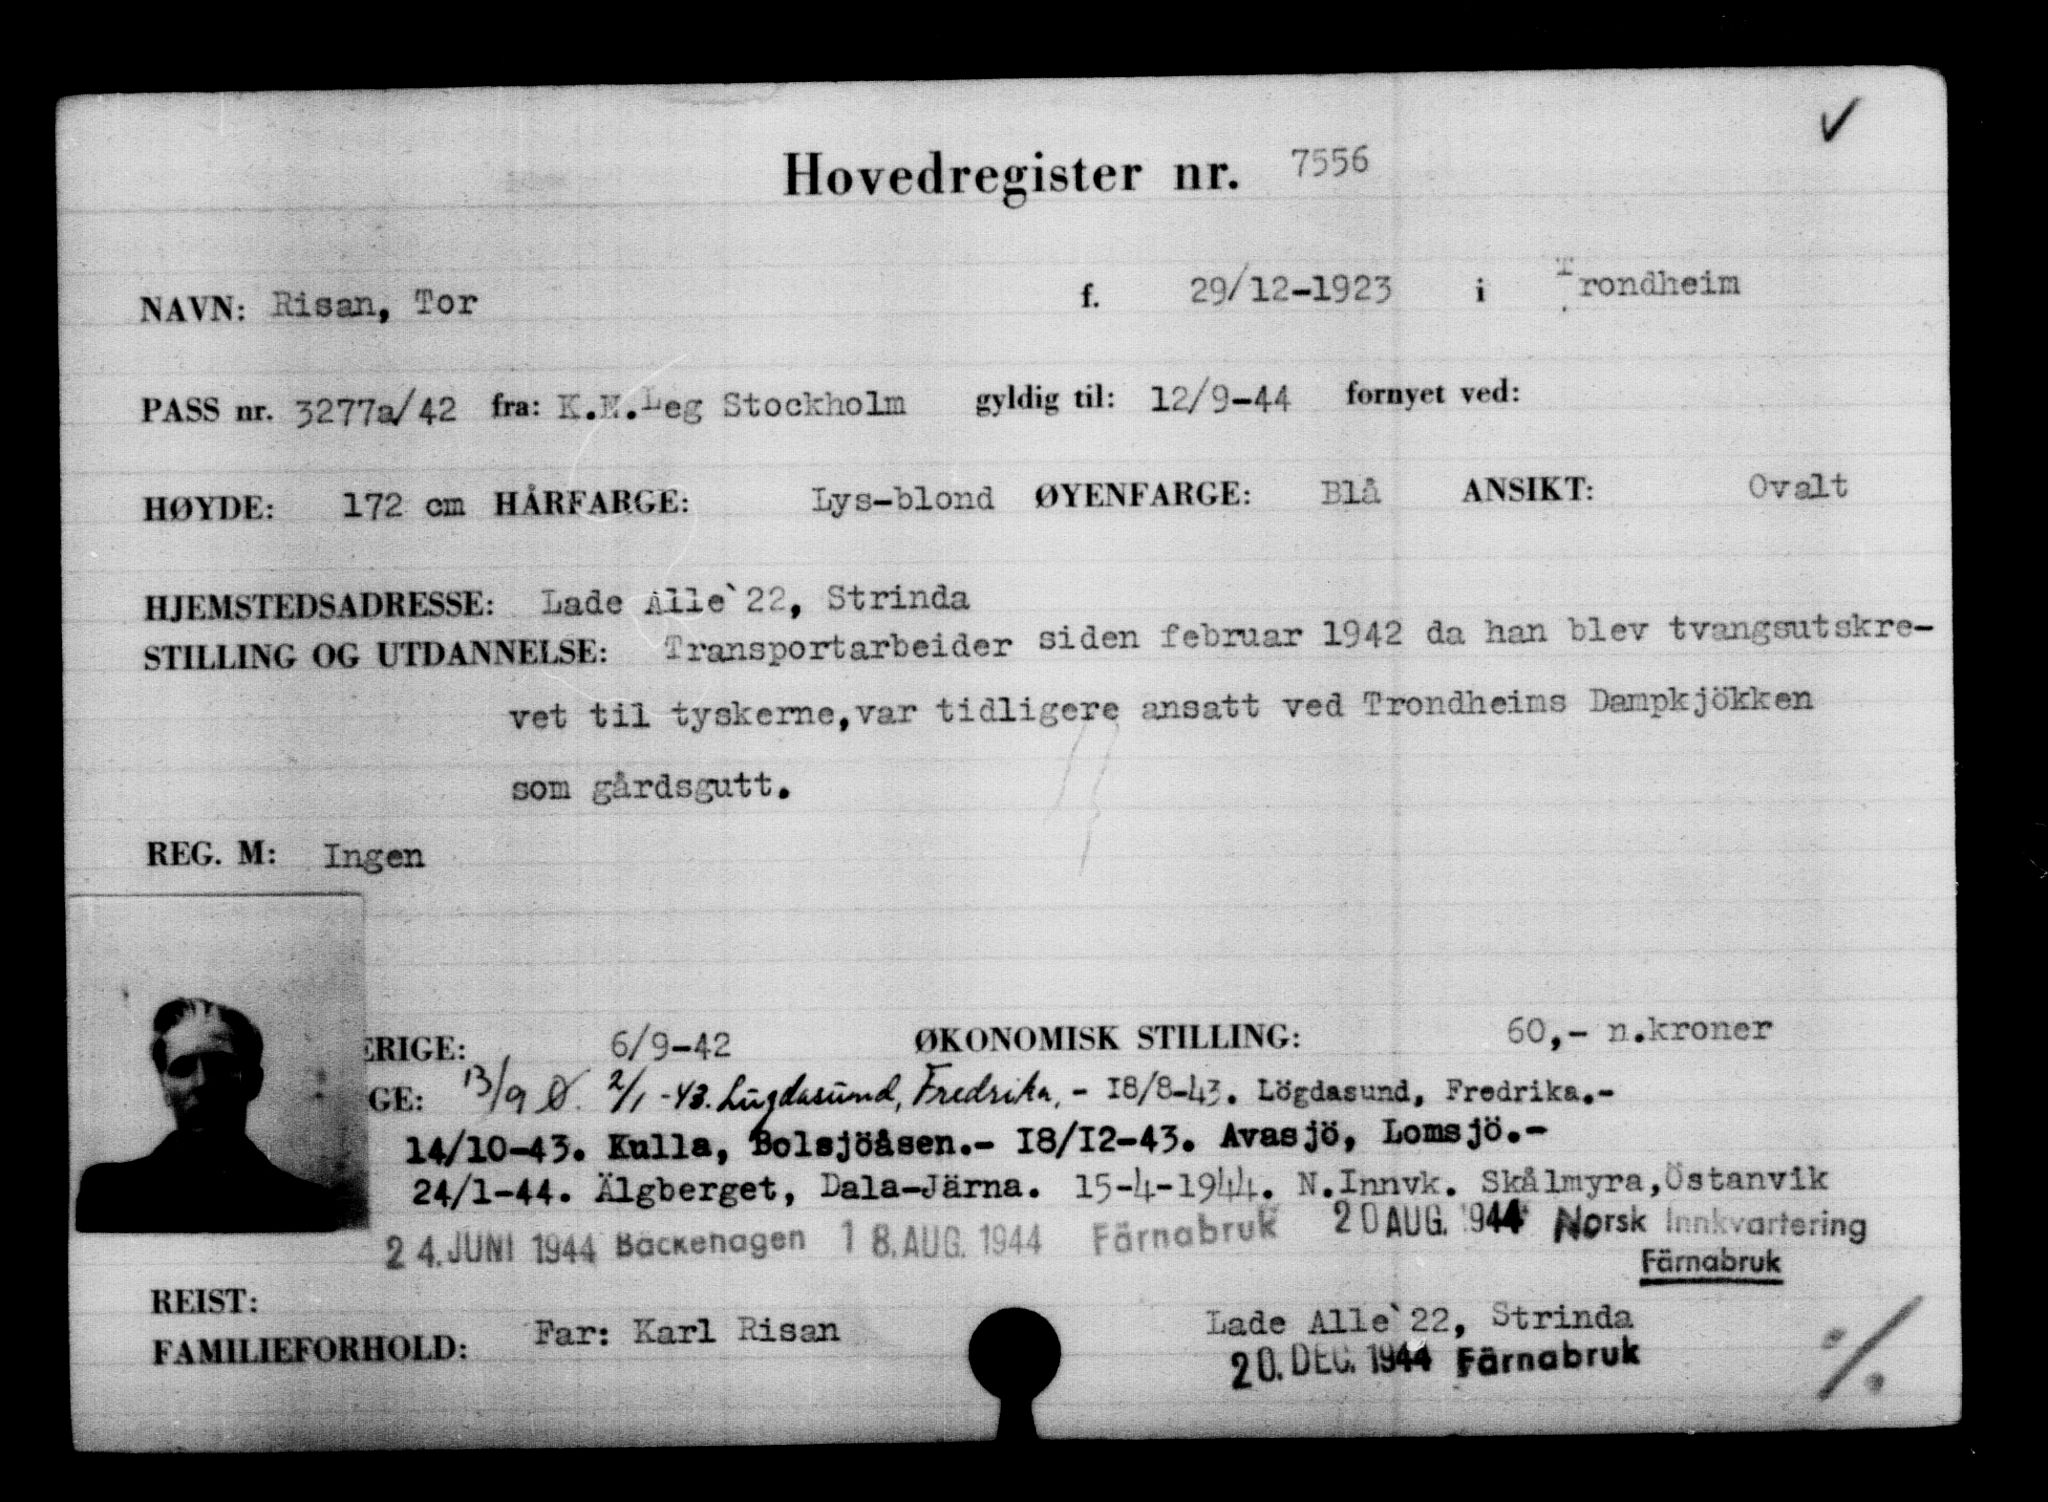 ✓
Hovedregister nr. 7556
NAVN: Risan, Tor f. 29/12-1923 i Trondheim
PASS nr. 3277a/42 fra: K.N.Leg Stockholm gyldig til: 12/9-44 fornyet ved:
HØYDE: 172 cm HÅRFARGE: Lys-blond ØYENFARGE: Blå ANSIKT: Ovalt
HJEMSTEDSADRESSE: Lade Alle`22, Strinda
STILLING OG UTDANNELSE: Transportarbeider siden februar 1942 da han blev tvangsutskre-
vet til tyskerne,var tidligere ansatt ved Trondheims Dampkjökken
som gårdsgutt.
REG. M: Ingen
ERIGE: 6/9-42 ØKONOMISK STILLING: 60,- n.kroner
GE: 13/9 Ø. 2/1-43. Lügdasund, Fredrika, - 18/8-43. Lögdasund, Fredrika.-
14/10-43. Kulla, Bolsjöåsen.- 18/12-43. Avasjö, Lomsjö.-
24/1-44. Älgberget, Dala-Järna. 15-4-1944. N.Innvk. Skålmyra,Östanvik
24. JUNI 1944 Backehagen 18. AUG. 1944 Färnabruk 20 AUG. 1944 Norsk Innkvartering
Färnabruk
REIST:
FAMILIEFORHOLD: Far: Karl Risan Lade Alle`22, Strinda
20. DEC. 1944 Färnabruk